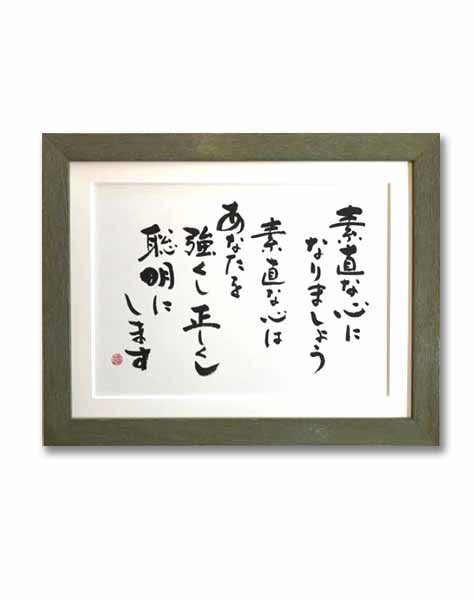 素直な心に
なりましょう
素直な心は
あなたを
強くし正しくし
聡明に
します